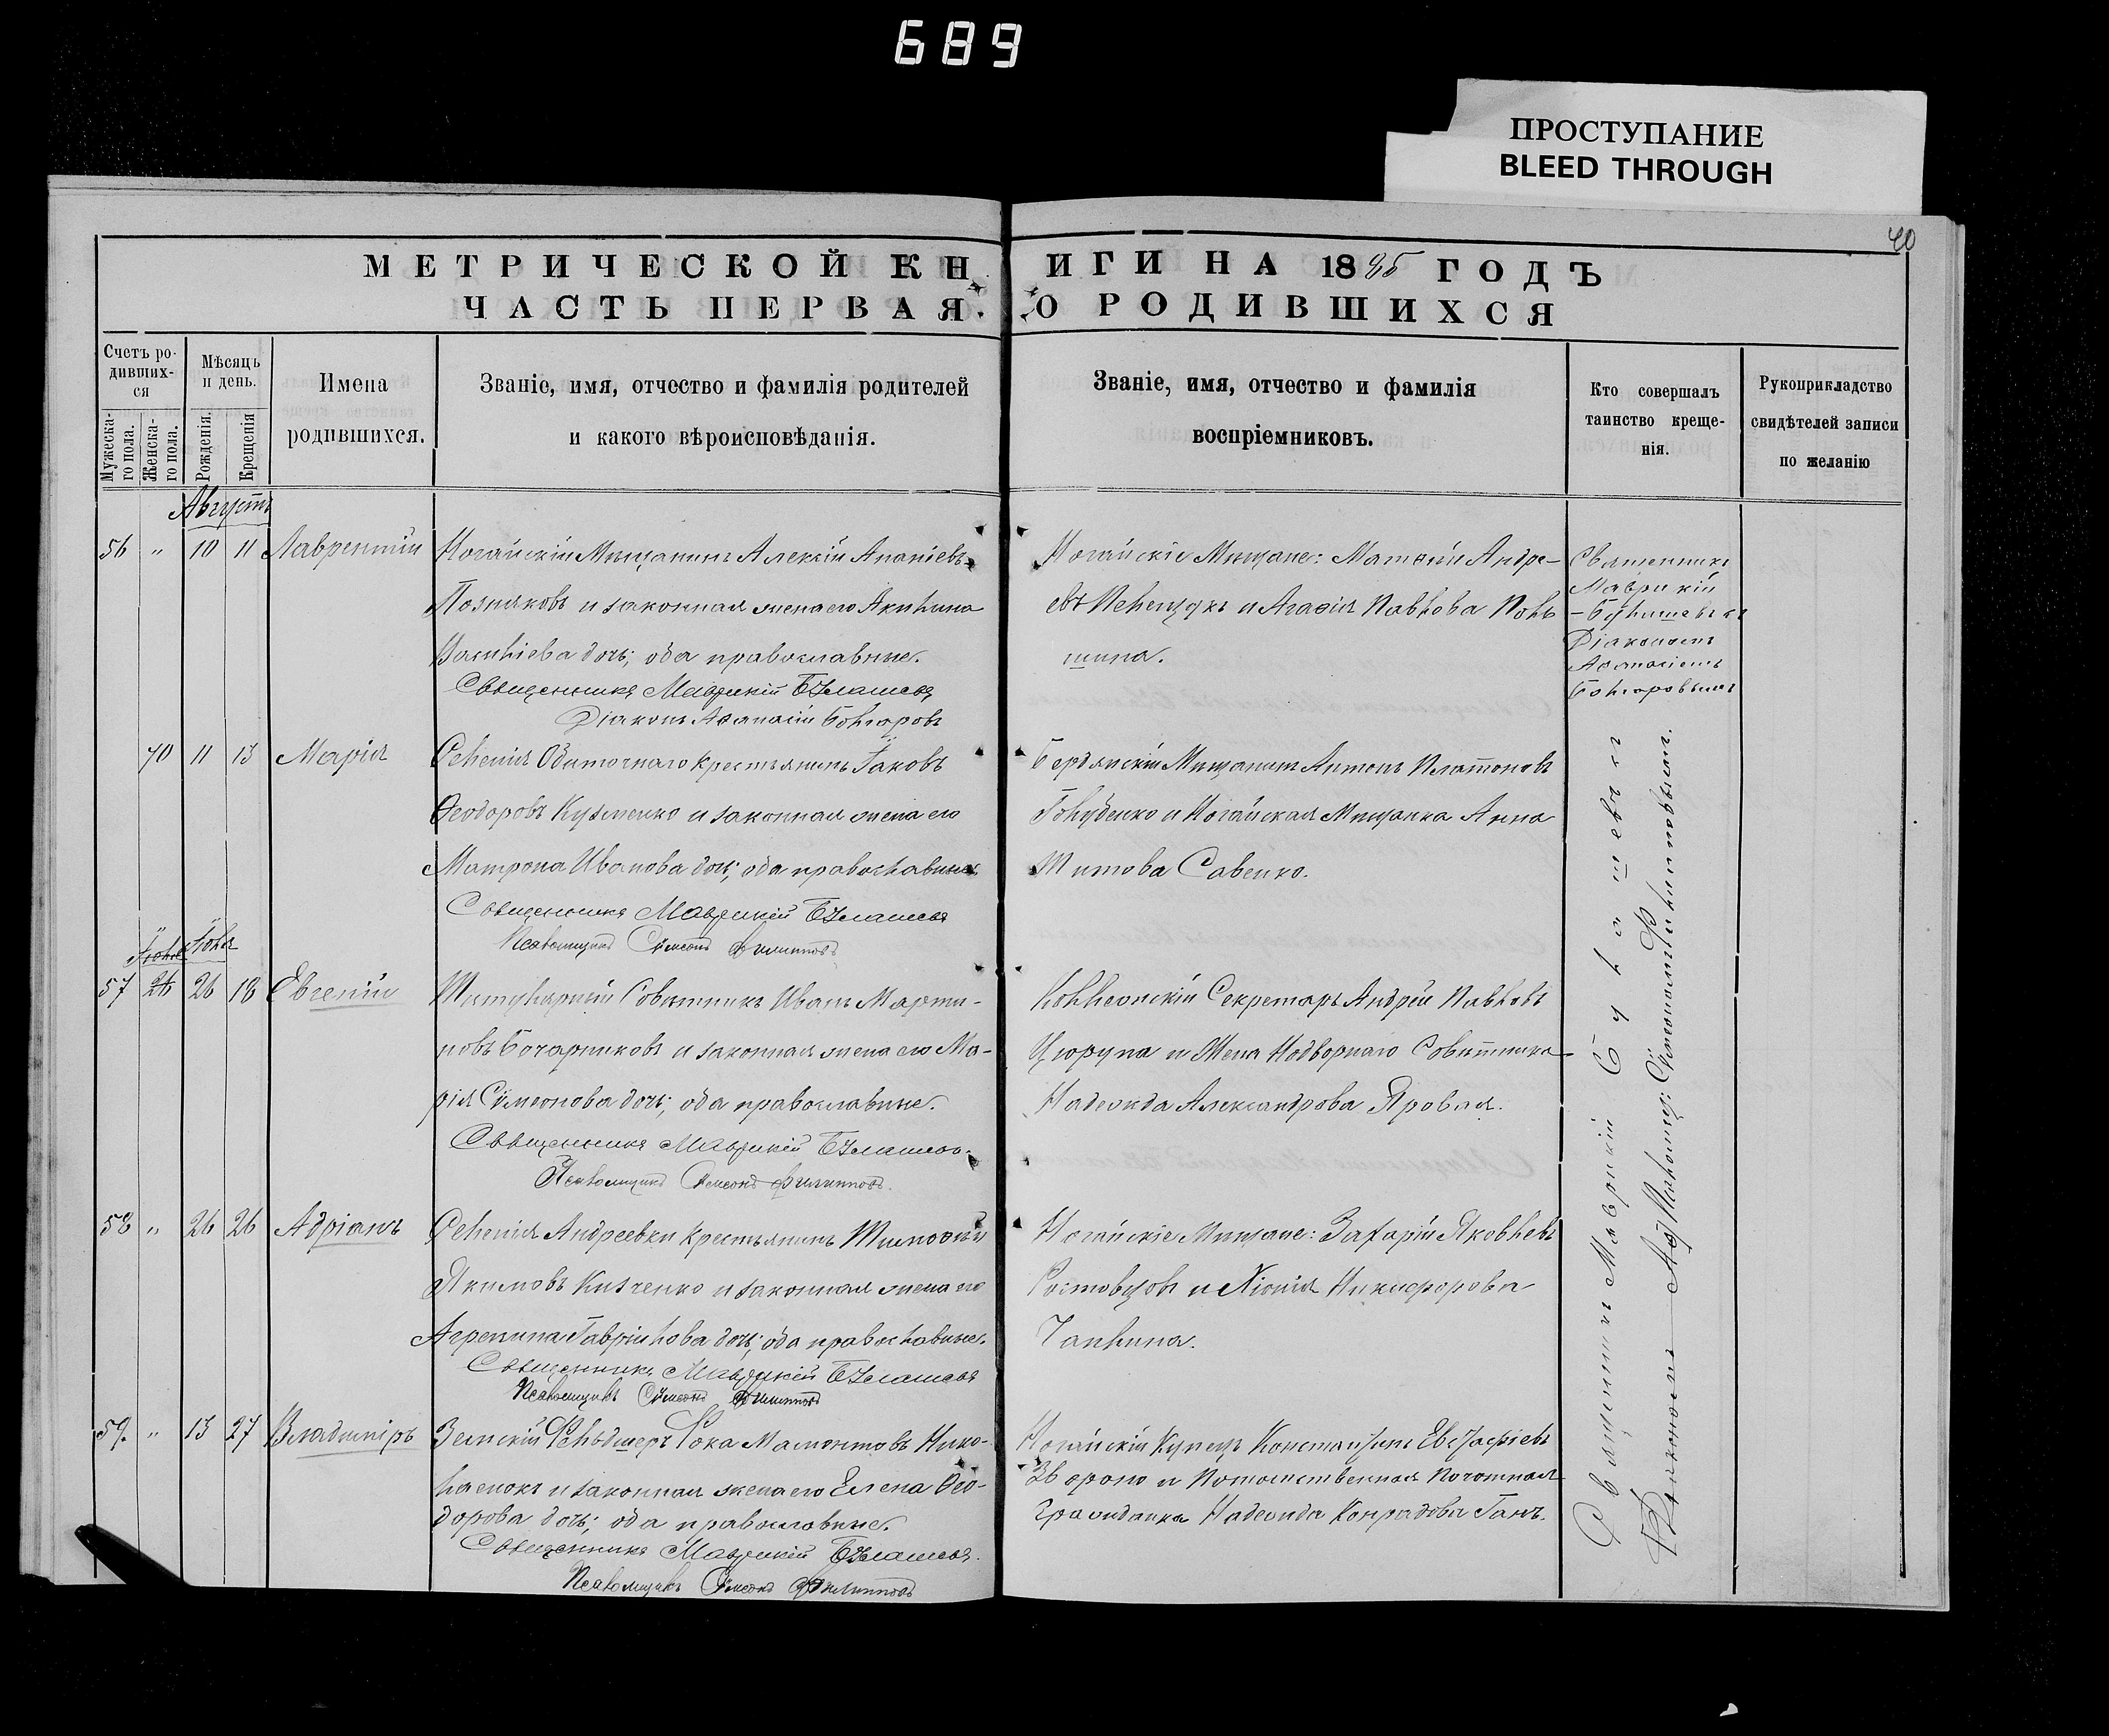 689
ПРОСТУПАНИЕ
BLEED THROUGH
40
МЕТРИЧЕСКОЙ КНИГИ НА 1885 ГОДЪ
ЧАСТЬ ПЕРВАЯ. О РОДИВШИХСЯ
Счетъ ро-
дивших-
ся
Мужеска-
го пола.
Женска-
го пола.
Мѣсяцъ
и день.
Рожденія.
Крещенія
Имена
родившихся.
Званіе, имя, отчество и фамилія родителей
и какого вѣроисповѣданія.
Званіе, имя, отчество и фамилія
воспріемниковъ.
Кто совершалъ
таинство креще-
нія.
Рукоприкладство
свидѣтелей записи
по желанію
Августъ
56 " 10 11 Лаврентій
Ногайскій Мѣщанинъ Алексій Ананіевъ
Позняковъ и законная жена его Акилина
Василіева дочь; оба православные.
Священникъ Маврикій Булашевъ
Діаконъ Аѳанасій Болгаровъ
Ногайскіе Мѣщане: Матѳій Андре-
евъ и Агаѳія Павлова
шина.
Священникъ
Маврикій
Булашевъ съ
Діакономъ
Аѳанасіемъ
Болгаровымъ
70 11 13 Марія
Селенія Обиточнаго крестьянинъ Іаковъ
Ѳеодоровъ Кузменко и законная жена его
Матрона Иванова дочь; оба православные.
Священникъ Маврикій Булашевъ
Псаломщикъ Сѵмеонъ Филипповъ
Бердянскій Мѣщанинъ Антонъ Платоновъ
Голубенко и Ногайская Мѣщанка Анна
Титова Савенко.
Іюля
57 26 26 18 Евгеній
Титулярный Совѣтникъ Иванъ Марти-
новъ Бочарниковъ и законная жена его Ма-
рія Сѵмеонова дочь; оба православные.
Священникъ Маврикій Булашевъ
Псаломщикъ Сѵмеонъ Филипповъ.
Коллежскій Секретарь Андрей Павловъ
Цюрупа и Жена Надворнаго Совѣтника
Надежда Александрова Яровая.
58 " 26 26 Адріанъ
Селенія Андреевки крестьянинъ Тимоѳей
Якимовъ Кизченко и законная жена его
Агрепина Гавріилова дочь; оба православные.
Священникъ Маврикій Булашевъ
Псаломщикъ Сѵмеонъ Филипповъ
Ногайскіе Мѣщане: Захарій Яковлевъ
Ростовцовъ и Хіонія Никифорова
Чаплина.
59. " 13 27 Владиміръ
Земскій Фельдшеръ Фока Мамонтовъ Нико-
лаенокъ и законная жена его Елена Ѳео-
дорова дочь; оба православные.
Священникъ Маврикій Булашевъ.
Псаломщикъ Сѵмеонъ Филипповъ
Ногайскій Купецъ Константинъ Евстафіевъ
и Потомственная Почотная
Гражданка Надежда Конрадова Ганъ.
Священникъ Маврикій Булашевъ съ
Псаломщ: Сѵмеономъ Филипповымъ.